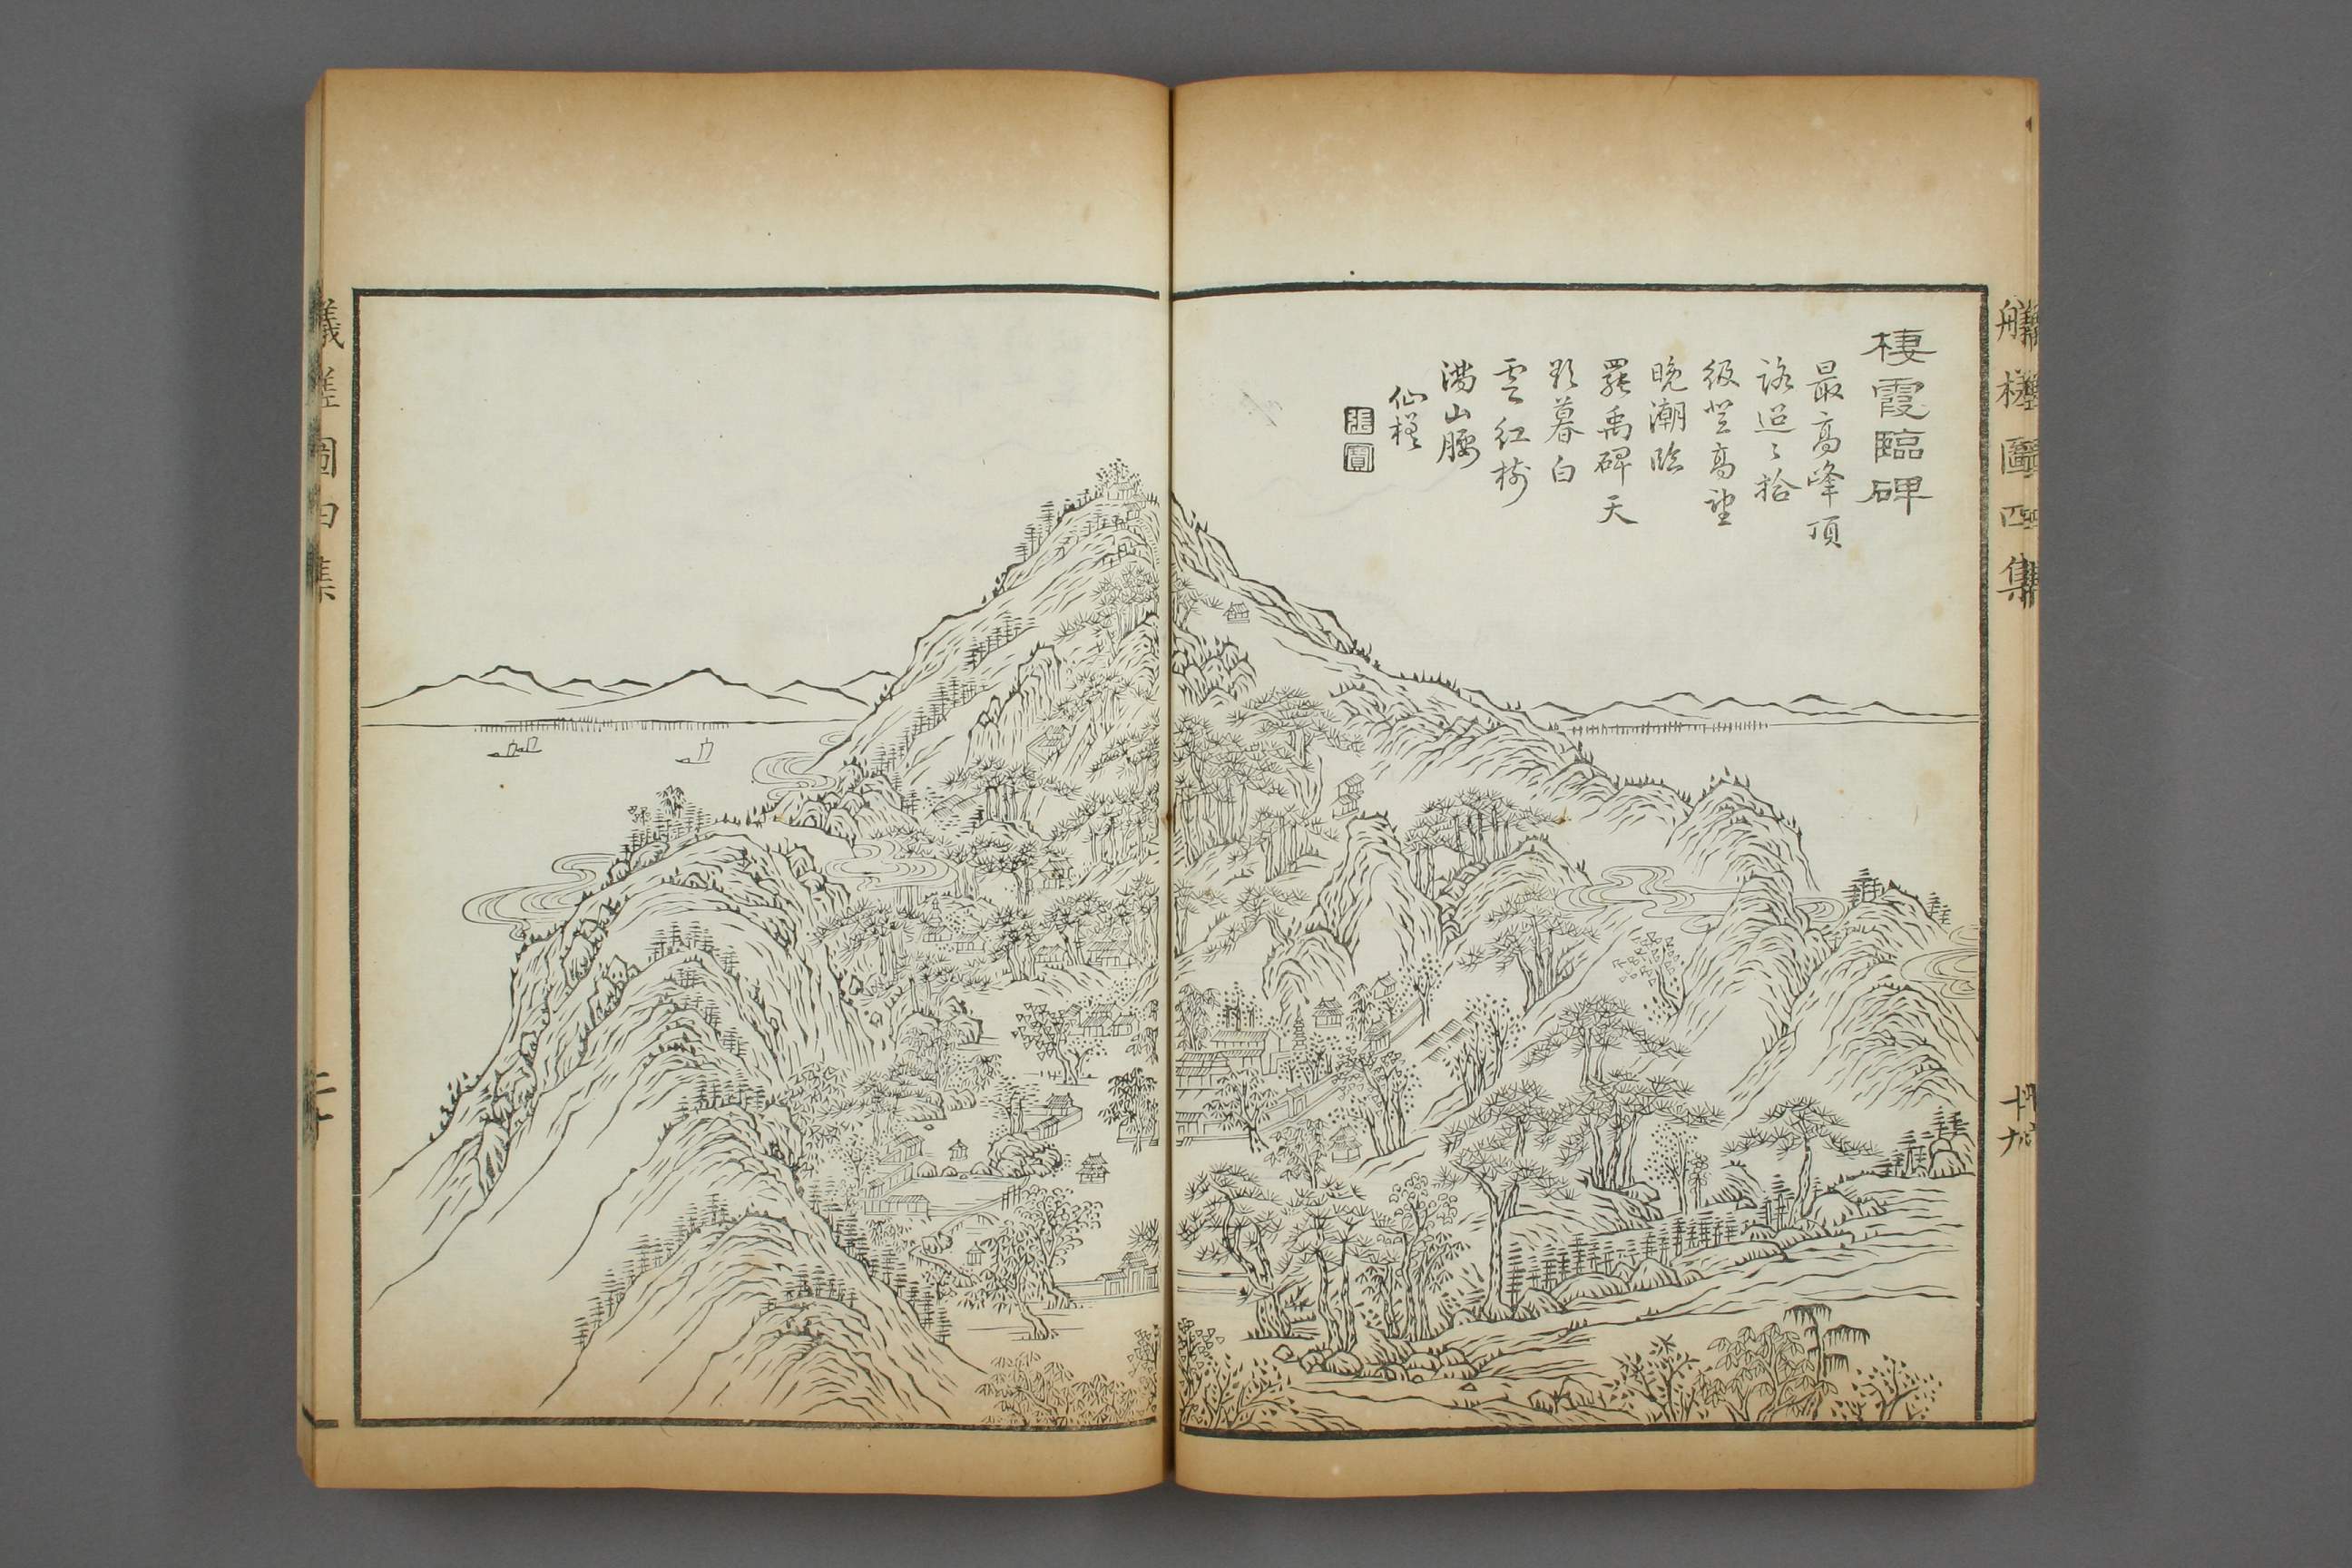 艤槎圖四集
十九
棲霞臨碑
最高峰頂
路迢〻拾
級登高望
晚潮臨
罷禹碑天
欲暮白
雲紅樹
滿山腰
仙槎
張寶
槎圖四集
二十